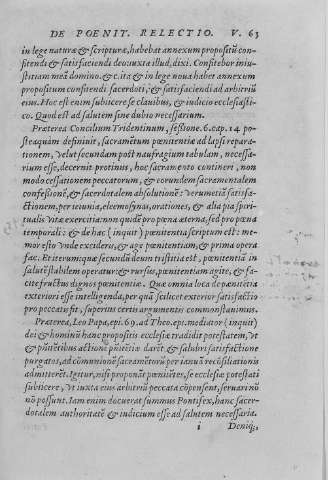 DE POENIT. RELECTIO. V. 63
in lege naturæ & scripturæ, habebat annexum propositũ con-
fitendi & satisfaciendi deo: iuxta illud, dixi. Confitebor iniu-
stitiam meã domino. & c. ita & in lege noua habet annexum
propositum confitendi sacerdoti, & satisfaciendi ad arbitriũ
eius. Hoc est enim subicere se clauibus, & iudicio ecclesiasti-
co. Quod est ad salutem sine dubio necessarium.
Præterea Concilium Tridentinum, sessione. 6. cap. 14 po-
steaquàm definiuit, sacramẽtum pœnitentiæ ad lapsi reparat-
ionem, velut secundam post naufragium tabulam, necessa-
rium esse, decernit protinus, hoc sacramento contineri, non
modo cessationem peccatorum, & eorundem sacramentalem
confessionẽ, & sacerdotalem absolutionẽ: Verumetiã satisfa-
ctionem, per ieiunia, eleemosynas, orationes, & alia pia spiri-
tualis vitæ exercitia: non quidẽ pro pœna æterna, sed pro pœna
temporali: & de hac (inquit) pœnitentia scriptum est: me-
mor esto vnde excideris, & age pœnitentiam, & prima opera
fac. Et iterum: quæ secundũ deum tristitia est, pœnitentiã in
salutẽ stabilem operatur: & rursus, pœnitentiam agite, & fa-
cite fructus dignos pœnitentiæ. Quæ omnia loca de pœnitẽtia
exteriori esse intelligenda, per quã scilicet exterior satisfactio
pro peccatis fit, superius certis argumentis commonstrauimus.
Præterea, Leo Papa, epi. 69. ad Theo. epi. mediator (inquit)
dei & hominũ hanc propositis ecclesiæ tradidit potestatem, vt
& pœnitẽtibus actionẽ pœnitẽtiæ darẽt & salubri satisfactione
purgatos, ad cõmunionẽ sacramẽtorũ per ianuã recõsiliationis
admitterẽt. Igitur, nisi proponãt pœnitẽtes, se ecclesiæ potestati
subiicere, vt iuxta eius arbitriũ peccata cõpensent, seruari nõ
nõ possunt. Iam enim docuerat summus Pontifex, hanc sacer-
dotalem authoritatẽ & iudicium esse ad salutem necessaria.
i Deniq;,